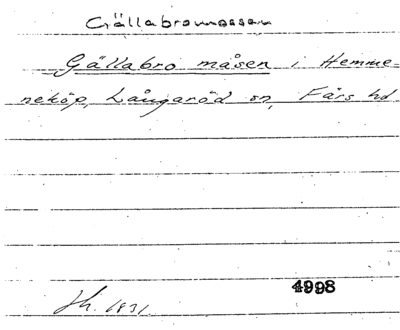 Gällabromossen
Gällabro måsen i Hemme-
neköp, Långaröd sn, Färs hd
4998
Jh. 1831.